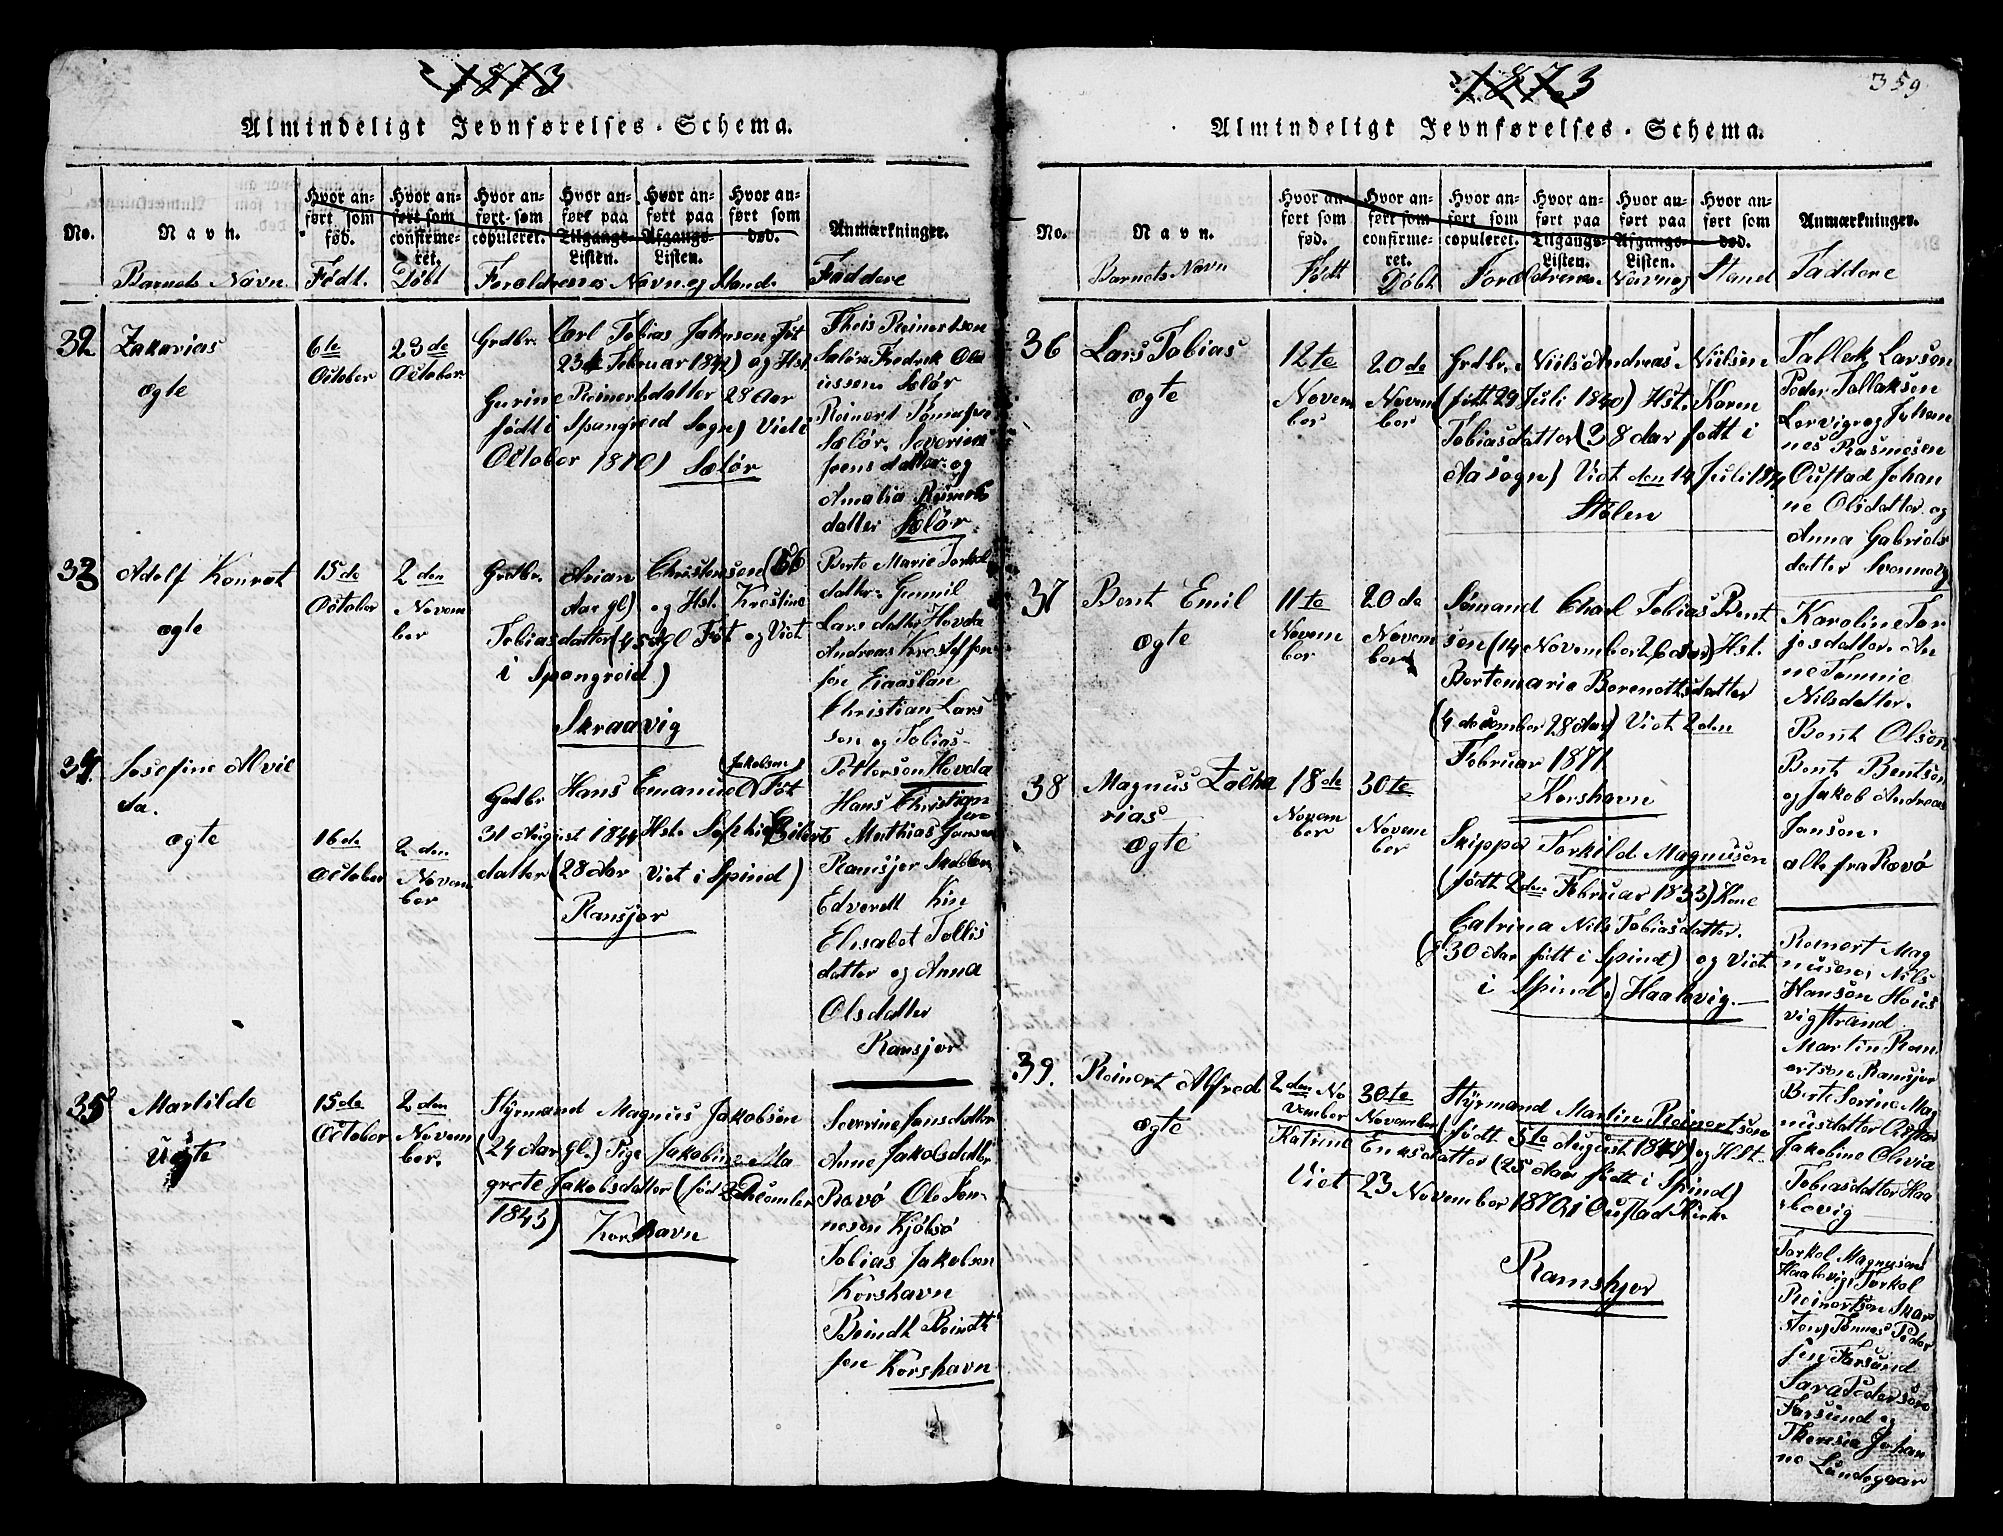 1873
Almindeligt Jevnførelses-Schema.
No.
Navn.
Hvor an-
ført som
fød.
Hvor an-
ført som
confirme-
ret.
Hvor an-
ført som
copuleret.
Hvor an-
ført paa
Tilgangs-
Listen.
Hvor an-
ført paa
Afgangs-
Listen.
Hvor an-
ført som
død.
Anmærkninger.
Barnets Navn
Født.
Døbt
Forældrenes Navn og Stand.
Faddere
32
Zakarias
ægte
6te
October
23de
October
Grdbr. Carl Tobias Jahnson Føt
Februar og Hst.
Gurine Reinertsdatter 28 Aar
født i Spangreid Sogn) Viet i
October 1870)
Sælør
Theis Reinertsen
Sælør. Fredrik Ola
ussen Sælør
Reinert
Sælør. Severine
Joens datter og
Amalia Reinerts
datter Sælør.
33
Adolf Konrat
ægte
15de
October
2den
Novem
ber
Grdbr. Arian Christensen (56
Aar gl) og Hst. Krestine
Tobiasdatter (45 gl Føt og Viet
i Spangreid)
Skraavig
Berte Marie Torkels
datter. Gunnil
Lars datter Hovda
Andreas Krestoffen
sen
Christian Lars
sen og Tobias
Pettersen Hovda
34.
Josefine Alvil
da.
ægte
16de
October
2den
Novem
ber
Grdbr Hans Emanuel Jakobsen Føt
31 August 1844 Hst. Sophie Eilerts
datter (28 Aar Viet i Spind)
Ramsjør
Hans Christian
sen
Mathias Jansen
Ramsjør
Edverdt
Elisabet Tollis
datter og Anna
Olsdatter
Ramsjør
35
Martilde
Uægte
15de
October
2den
Novem
ber.
Styrmand Magnus Jakobsen
(24 Aar gl.) Pige Jakobine Ma
grete Jakobsdatter (fød 2 December
1845)
Korshavn
Severine Jansdatter
Anne Jakobsdatter
Rævø Ole Ton-
nesen Kjøbsø
Tobias Jakobsen
Korshavn
Beindt Beindt
sen Korshavn
1873
359
Almindeligt Jevnførelses-Schema.
No.
Navn.
Hvor an-
ført som
fød.
Hvor an-
ført som
confirme-
ret.
Hvor an-
ført som
copuleret.
Hvor an-
ført paa
Tilgangs-
Listen.
Hvor an-
ført paa
Afgangs-
Listen.
Hvor an-
ført som
død.
Anmærkninger.
Barnets Navn
Født
Døbt
Forældrenes Navn og Stand
Faddere
36
Lars Tobias
ægte
12te
Novem
ber
20de
Novem
ber
Grdbr. Niils Andreas Niilsen
(født 29 Juli 1840) Hst. Karen
Tobiasdatter (38 Aar født i
Aa sogn) Viet den 14 Juli
Stølen
Tallek Larsen
Peder Tallaksen
Lervig og Johan
nes Rasmusen
Oustad Johan
ne Olsdatter og
Anna Gabriels
datter
37
Bent Emil
ægte
11te
Novem
ber
20de
Novem
ber
Sømand Charl Tobias Bent
sen (14 November 26 Aar) Hst.
Bertemarie Berenottsdatter
(4 december 28 Aar) Viet 2den
Februar 1871
Korshavn
Karoline Tor
jesdatter. An
ne Tomine
Nilsdatter.
Bent Olsen
Bent Bentsen
og Jakob Andreas
Janson.
alle fra Rævø
38
Magnus Zacha
rias
ægte
18de
Novem
ber
30te
Novem
ber
Skipper Torkild Magnusen
(født 2den Februar 1833) Kone
Catrina Nils Tobiasdatter.
(30 Aar født i Spind) og Viet
i Spind.) Haalevig.
Reinert Mag
nusen, Nils
Hansen Hous
vigstrand
Martin Rein
ertsen Ramsjør
Berte Sorine Mag
nusdatter Oustad
Jakobine Olivia
Tobiasdatter Haa
levig
39.
Reinert Alfred
ægte
2den No
vember
30te
November
Styrmand Martin Reinertsen
(født 5te August og Hst.
Katine Eriksdatter (25 Aar født i Spind)
Viet 23 November 1870 i Oustad Kirke
Ramshjør
Torkel Magnusen
Haalevig, Torkel
Reinertsen
Tønnes Peder
sen Farsund
Sara Pedersen
Farsund og
Theresia Johan
ne Lundegaar